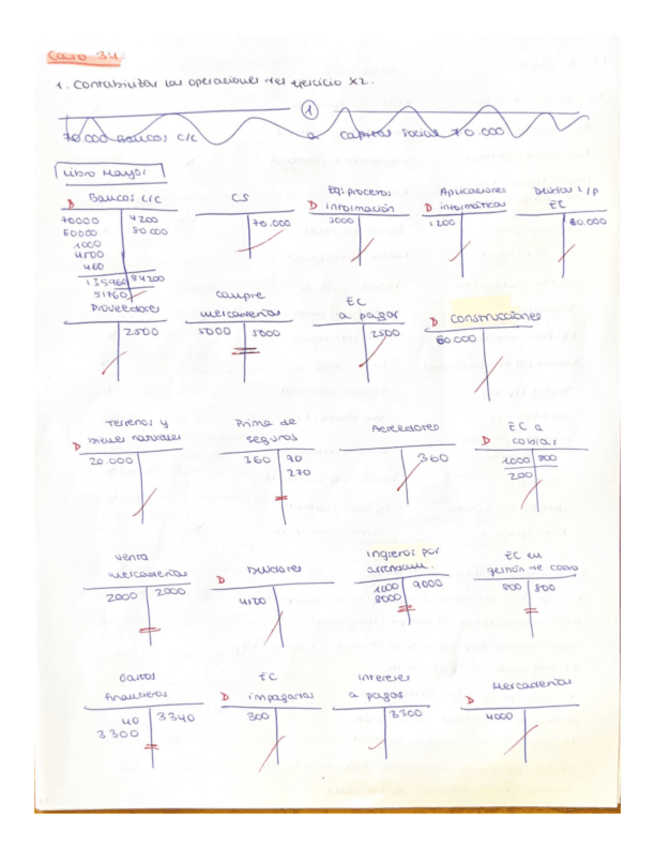 Caso 34.
1. Contabilizar las operaciones del ejercicio X2.
1
70.000 Bancos c/c a Capital Social 70.000
Libro Mayor
D Bancos c/c
70000 4200
60000 80000
1000
4500
460
135960 84200
51760
CS
70.000
Eq. procesos
D información
3000
Aplicaciones
D informáticas
1200
Deudas l/p
EC
60.000
Proveedores
2500
Compra
mercaderías
5000 5000
EC
a pagar
2500
D Construcciones
60.000
Terrenos y
D bienes naturales
20.000
Prima de
seguros
360 90
270
Acreedores
360
EC a
D cobrar
1000 800
200
Venta
mercaderías
2000 2000
D Deudores
Ingresos por
arrendam.
1000 9000
8000
EC en
gestión de cobro
800 800
Gastos
financieros
40 3340
3300
EC
D impagadas
300
Intereses
a pagar
3300
D Mercaderías
4000